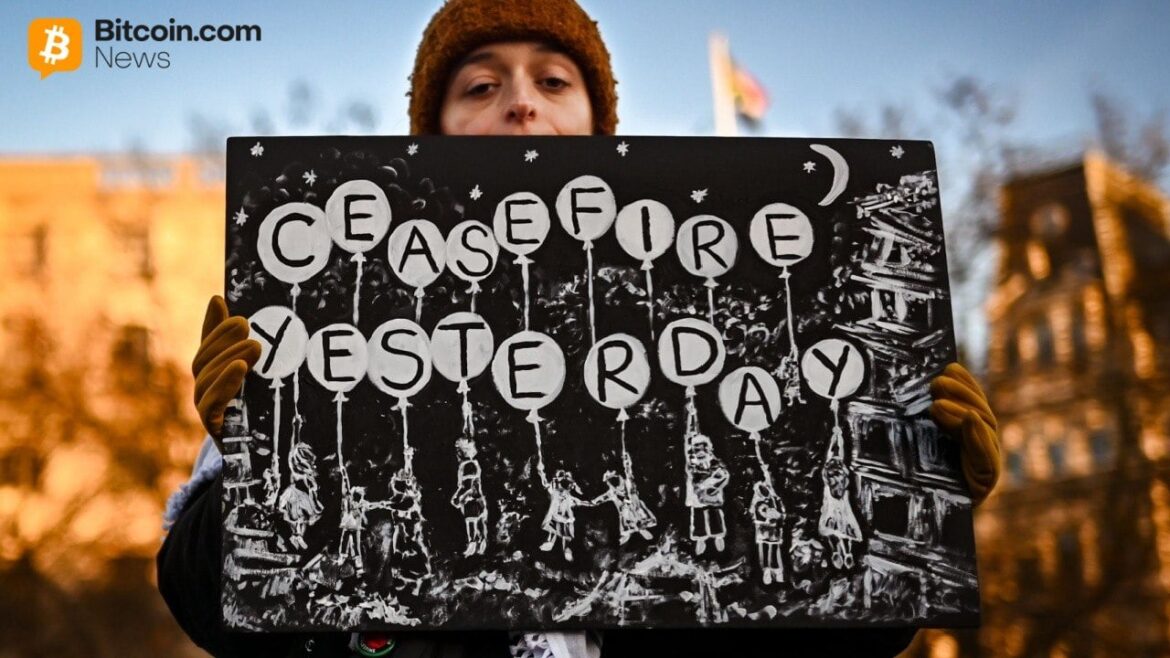 Bitcoin.com
News
CEASEFIRE
YESTERDAY